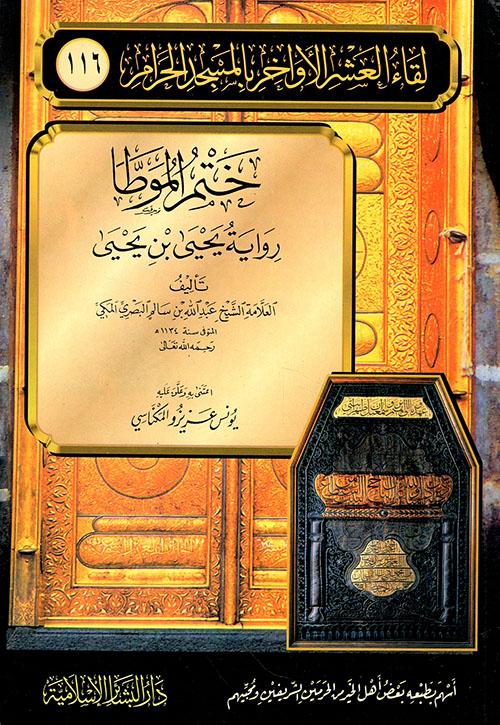 لقاء العشر الأواخر بالمسجد الحرام
١١٦
ختم الموطأ
رواية يحيى بن يحيى
تأليف
العلامة الشيخ عبد الله بن سالم البصري المكي
المتوفى سنة ١١٣٤ هـ
رحمه الله تعالى
اعتنى به وعلق عليه
يونس عزيزو المكناسي
أسهم بطبعه بعض أهل الخير من الحرمين الشريفين ومحبيهم
دار البشائر الإسلامية